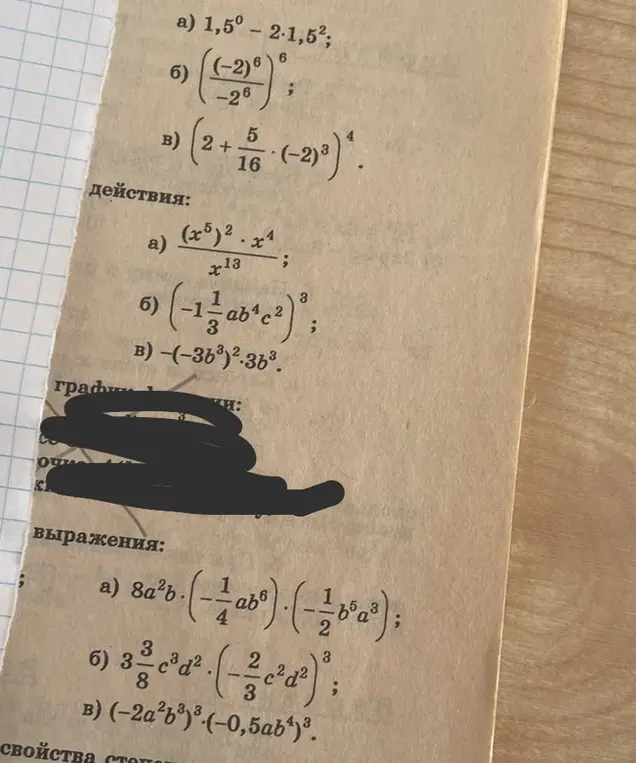 а) 1,5⁰ − 2·1,5²;
б) ((−2)⁶ / −2⁶)⁶;
в) (2 + 5/16 · (−2)³)⁴.
действия:
а) (x⁵)² · x⁴ / x¹³;
б) (−1 1/3 ab⁴c²)³;
в) −(−3b³)²·3b³.
выражения:
; а) 8a²b · (−1/4 ab⁶) · (−1/2 b⁵a³);
б) 3 3/8 c³d² · (−2/3 c²d²)³;
в) (−2a²b³)³·(−0,5ab⁴)³.
свойства